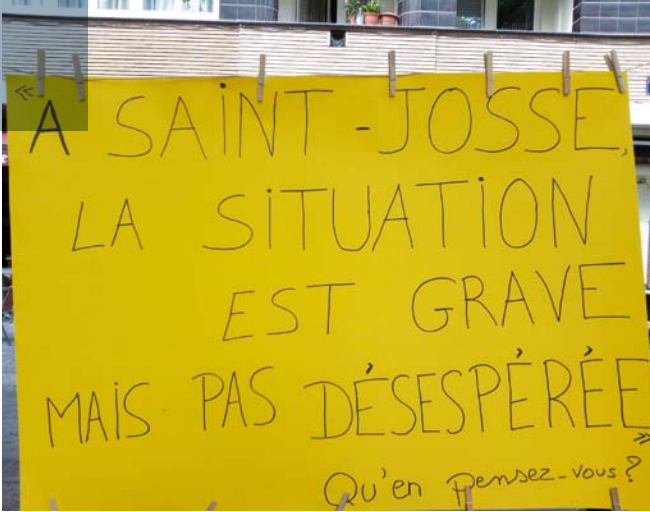 « A SAINT-JOSSE,
LA SITUATION
EST GRAVE
MAIS PAS DÉSESPÉRÉE
»
Qu'en pensez-vous?